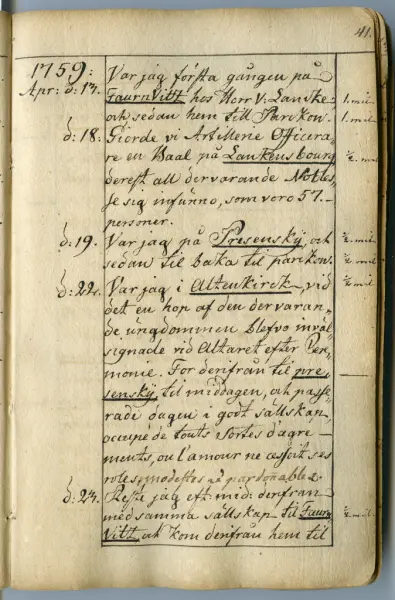 41.
1759:
Apr: d: 17. Var jag första gången på
Faurnvitt hos Herr V: Lancke 1. mil.
och sedan hem till Parckow. 1. mil
d: 18. Giorde vi Artillerie Officera-
re en Baal på Lanckensbourg ½ mil
derest all dervarande Nobles,
se sig infunno, som voro 57.
personer.
d: 19. Var jag på Presensky, och ½ mil
sedan til baka til parckow. ½ mil
d: 22. Var jag i Altenkirck, vid ½ mil
det en hop af den dervaran-
de ungdommen blefvo inväl-
signade vid Altaret efter Cer-
monie. For derifrån til pre
sensky, til middagen, och passe
rade dagen i godt sällskap,
occupé de touts sortes d'agre
ments, ou l'amour ne
roles modestes et pardonables.
d: 23. Reste jag eft: mid: derifrån
med samma sällskap til Faurn ½ mil
vitt, och kom derifrån hem til